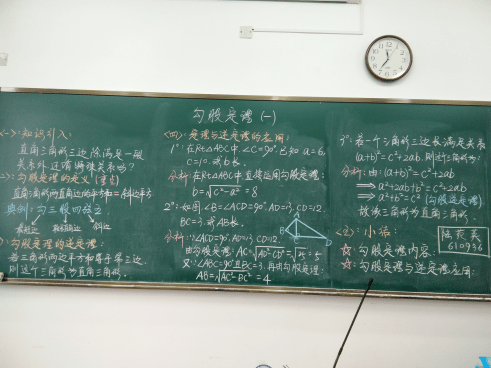 勾股定理(一)
<一>:知识引入:
直角三角形三边除满足一般
关系外还有特殊关系吗?
<二>:勾股定理的定义(重点)
直角三角形两直角边的平方和=斜边平方
典例:勾三股四弦五
较短边 较长直角边 斜边
勾股定理的逆定理:
若三角形两边平方和等于第三边
则这个三角形为直角三角形.
<四>:定理与逆定理的应用:
1°:在Rt△ABC中,∠C=90°,已知a=6,
c=10.求b长.
分析:在Rt△ABC中直接运用勾股定理:
b=√c²-a²=8
2°:如图,∠B=∠ACD=90°,AD=13,CD=12,
BC=3,求AB长.
分析:∵∠ACD=90°,AD=13,CD=12.
由勾股定理:AC=√AD²-CD²=√25=5
又∵∠ABC=90°且BC=3.再由勾股定理:
AB=√AC²-BC²=4
A
B
C
D
3°:若一个三角形三边长满足关系
(a+b)²=c²+2ab.则这个三角形为:
分析:由:(a+b)²=c²+2ab
⟹a²+2ab+b²=c²+2ab
⟹a²+b²=c²(勾股定理)
故该三角形为直角三角形.
<五>:小结:
☆:勾股定理内容.
☆:勾股定理与逆定理应用.
610936